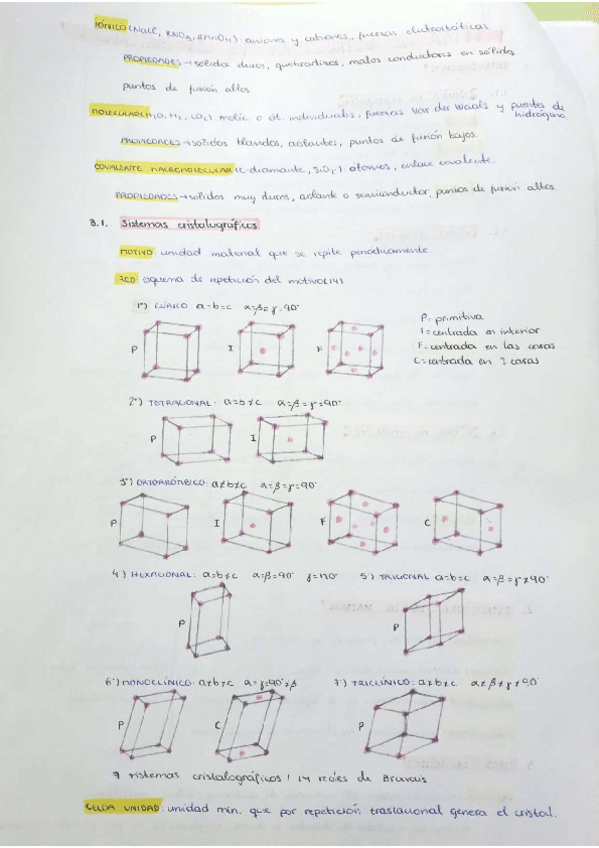 IÓNICO (NaCl, KNO3, KMnO4): aniones y cationes, fuerzas electrostáticas.
PROPIEDADES → sólidos duros, quebradizos, malos conductores en sólido
puntos de fusión altos
MOLECULAR (H2O, H2, CO2) moléc o át. individuales, fuerzas Van der Waals y puentes de
hidrógeno.
PROPIEDADES → sólidos blandos, aislantes, puntos de fusión bajos.
COVALENTE MACROMOLECULAR (C-diamante, SiO2): átomos, enlace covalente.
PROPIEDADES → sólidos muy duros, aislante o semiconductor, puntos de fusión altos.
3.1. Sistemas cristalográficos
MOTIVO: unidad material que se repite periódicamente.
RED: esquema de repetición del motivo (14)
1º) CÚBICO: a=b=c α=β=γ=90°
P I F
P= primitiva
I= centrada en interior
F= centrada en las caras
C= centrada en 2 caras
2º) TETRAGONAL: a=b≠c α=β=γ=90°
P I
3º) ORTORRÓMBICO: a≠b≠c α=β=γ=90°
P I F C
4º) HEXAGONAL: a=b≠c α=β=90° γ=120° 5º) TRIGONAL a=b=c α=β=γ≠90°
P P
6º) MONOCLÍNICO: a≠b≠c α=γ=90°≠β 7º) TRICLÍNICO: a≠b≠c α≠β≠γ≠90
P C P
7 sistemas cristalográficos / 14 redes de Bravais
CELDA UNIDAD: unidad mín. que por repetición traslacional genera el cristal.